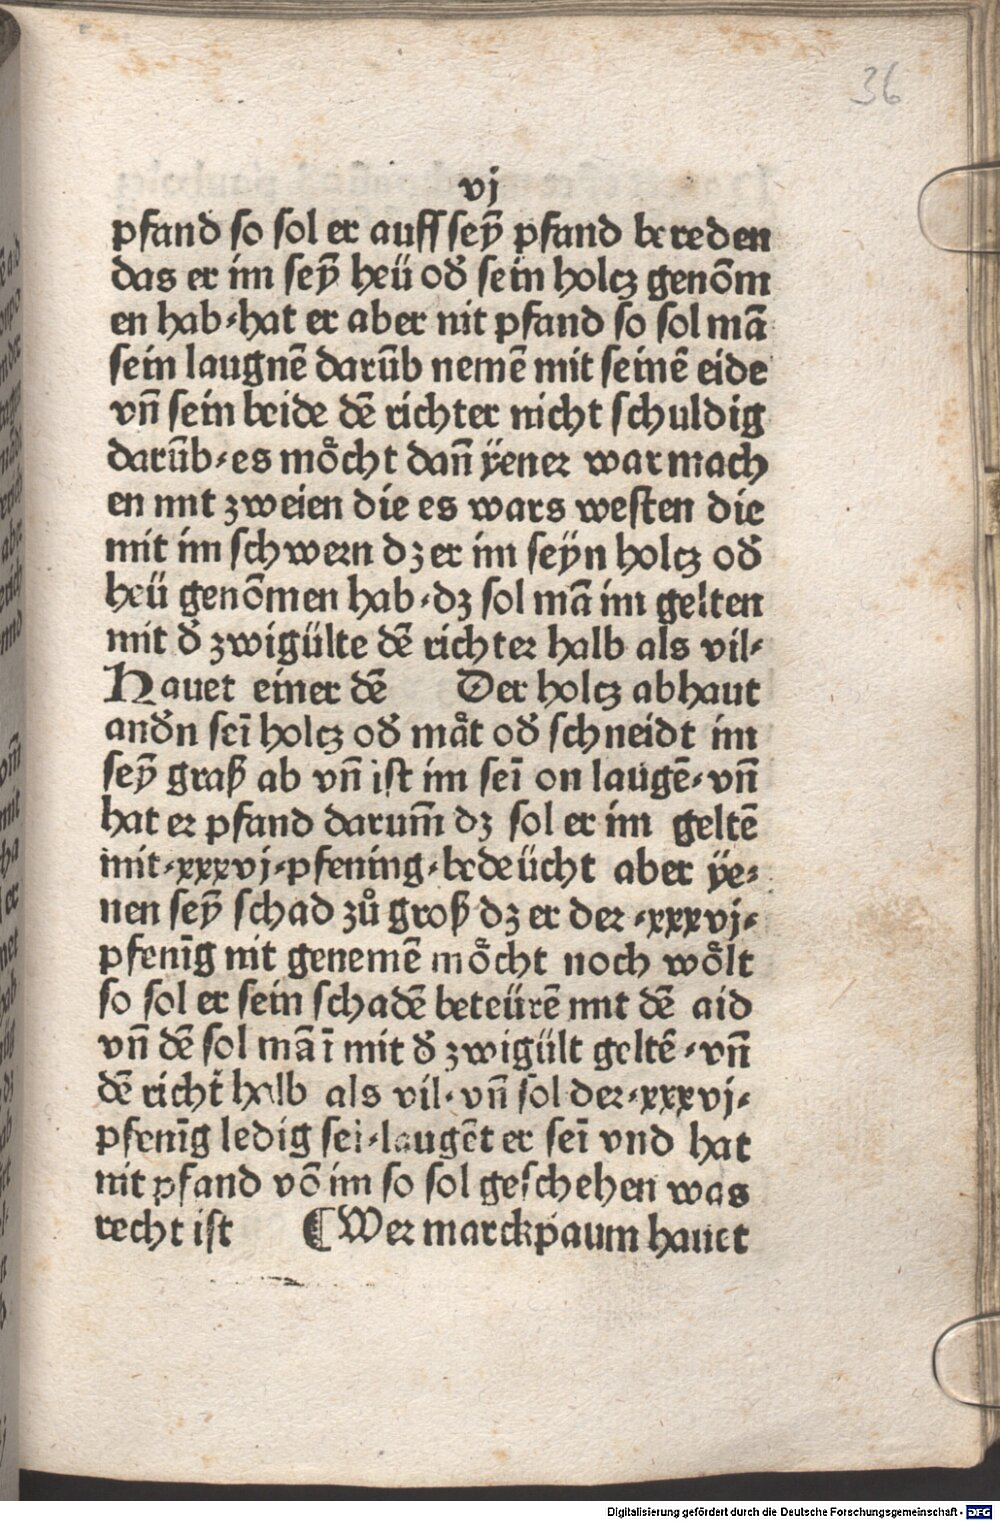 36
vj
pfand so sol er auff seȳ pfand bereden
das er im seȳ heü od̛ sein holcz genōm
en hab. hat er aber nit pfand so sol mā
sein laugnē darūb nemē mit seinē eide
vn̄ sein beide dē richter nicht schuldig
darūb. es moͤcht dan̄ ÿener war mach
en mit zweien die es wars westen die
mit im schwern dz er im seyn holcz od̛
heü genōmen hab. dz sol mā im gelten
mit d̛ zwigülte dē richter halb als vil.
Hauet einer dē Der holcz abhaut
and̛n seī holcz od̛ maͤt od̛ schneidt im
seȳ graß ab vn̄ ist im seī on laugē. vn̄
hat er pfand darum̄ dz sol er im geltē
mit. xxxvj. pfening. bedeücht aber ÿe-
nen seȳ schad zuͦ groß dz er der .xxxvj.
pfenīg nit genemē moͤcht noch woͤlt
so sol er sein schadē beteürē mit dē aid
vn̄ dē sol mā ī mit d̛ zwigült geltē. vn̄
dē richt̛ halb als vil. vn̄ sol der. xxxvj.
pfenīg ledig sei. laugēt er seī vnd hat
nit pfand vō im so sol geschehen was
recht ist ¶ Wer marckpaum hauet
Digitalisierung gefördert durch die Deutsche Forschungsgemeinschaft - DFG